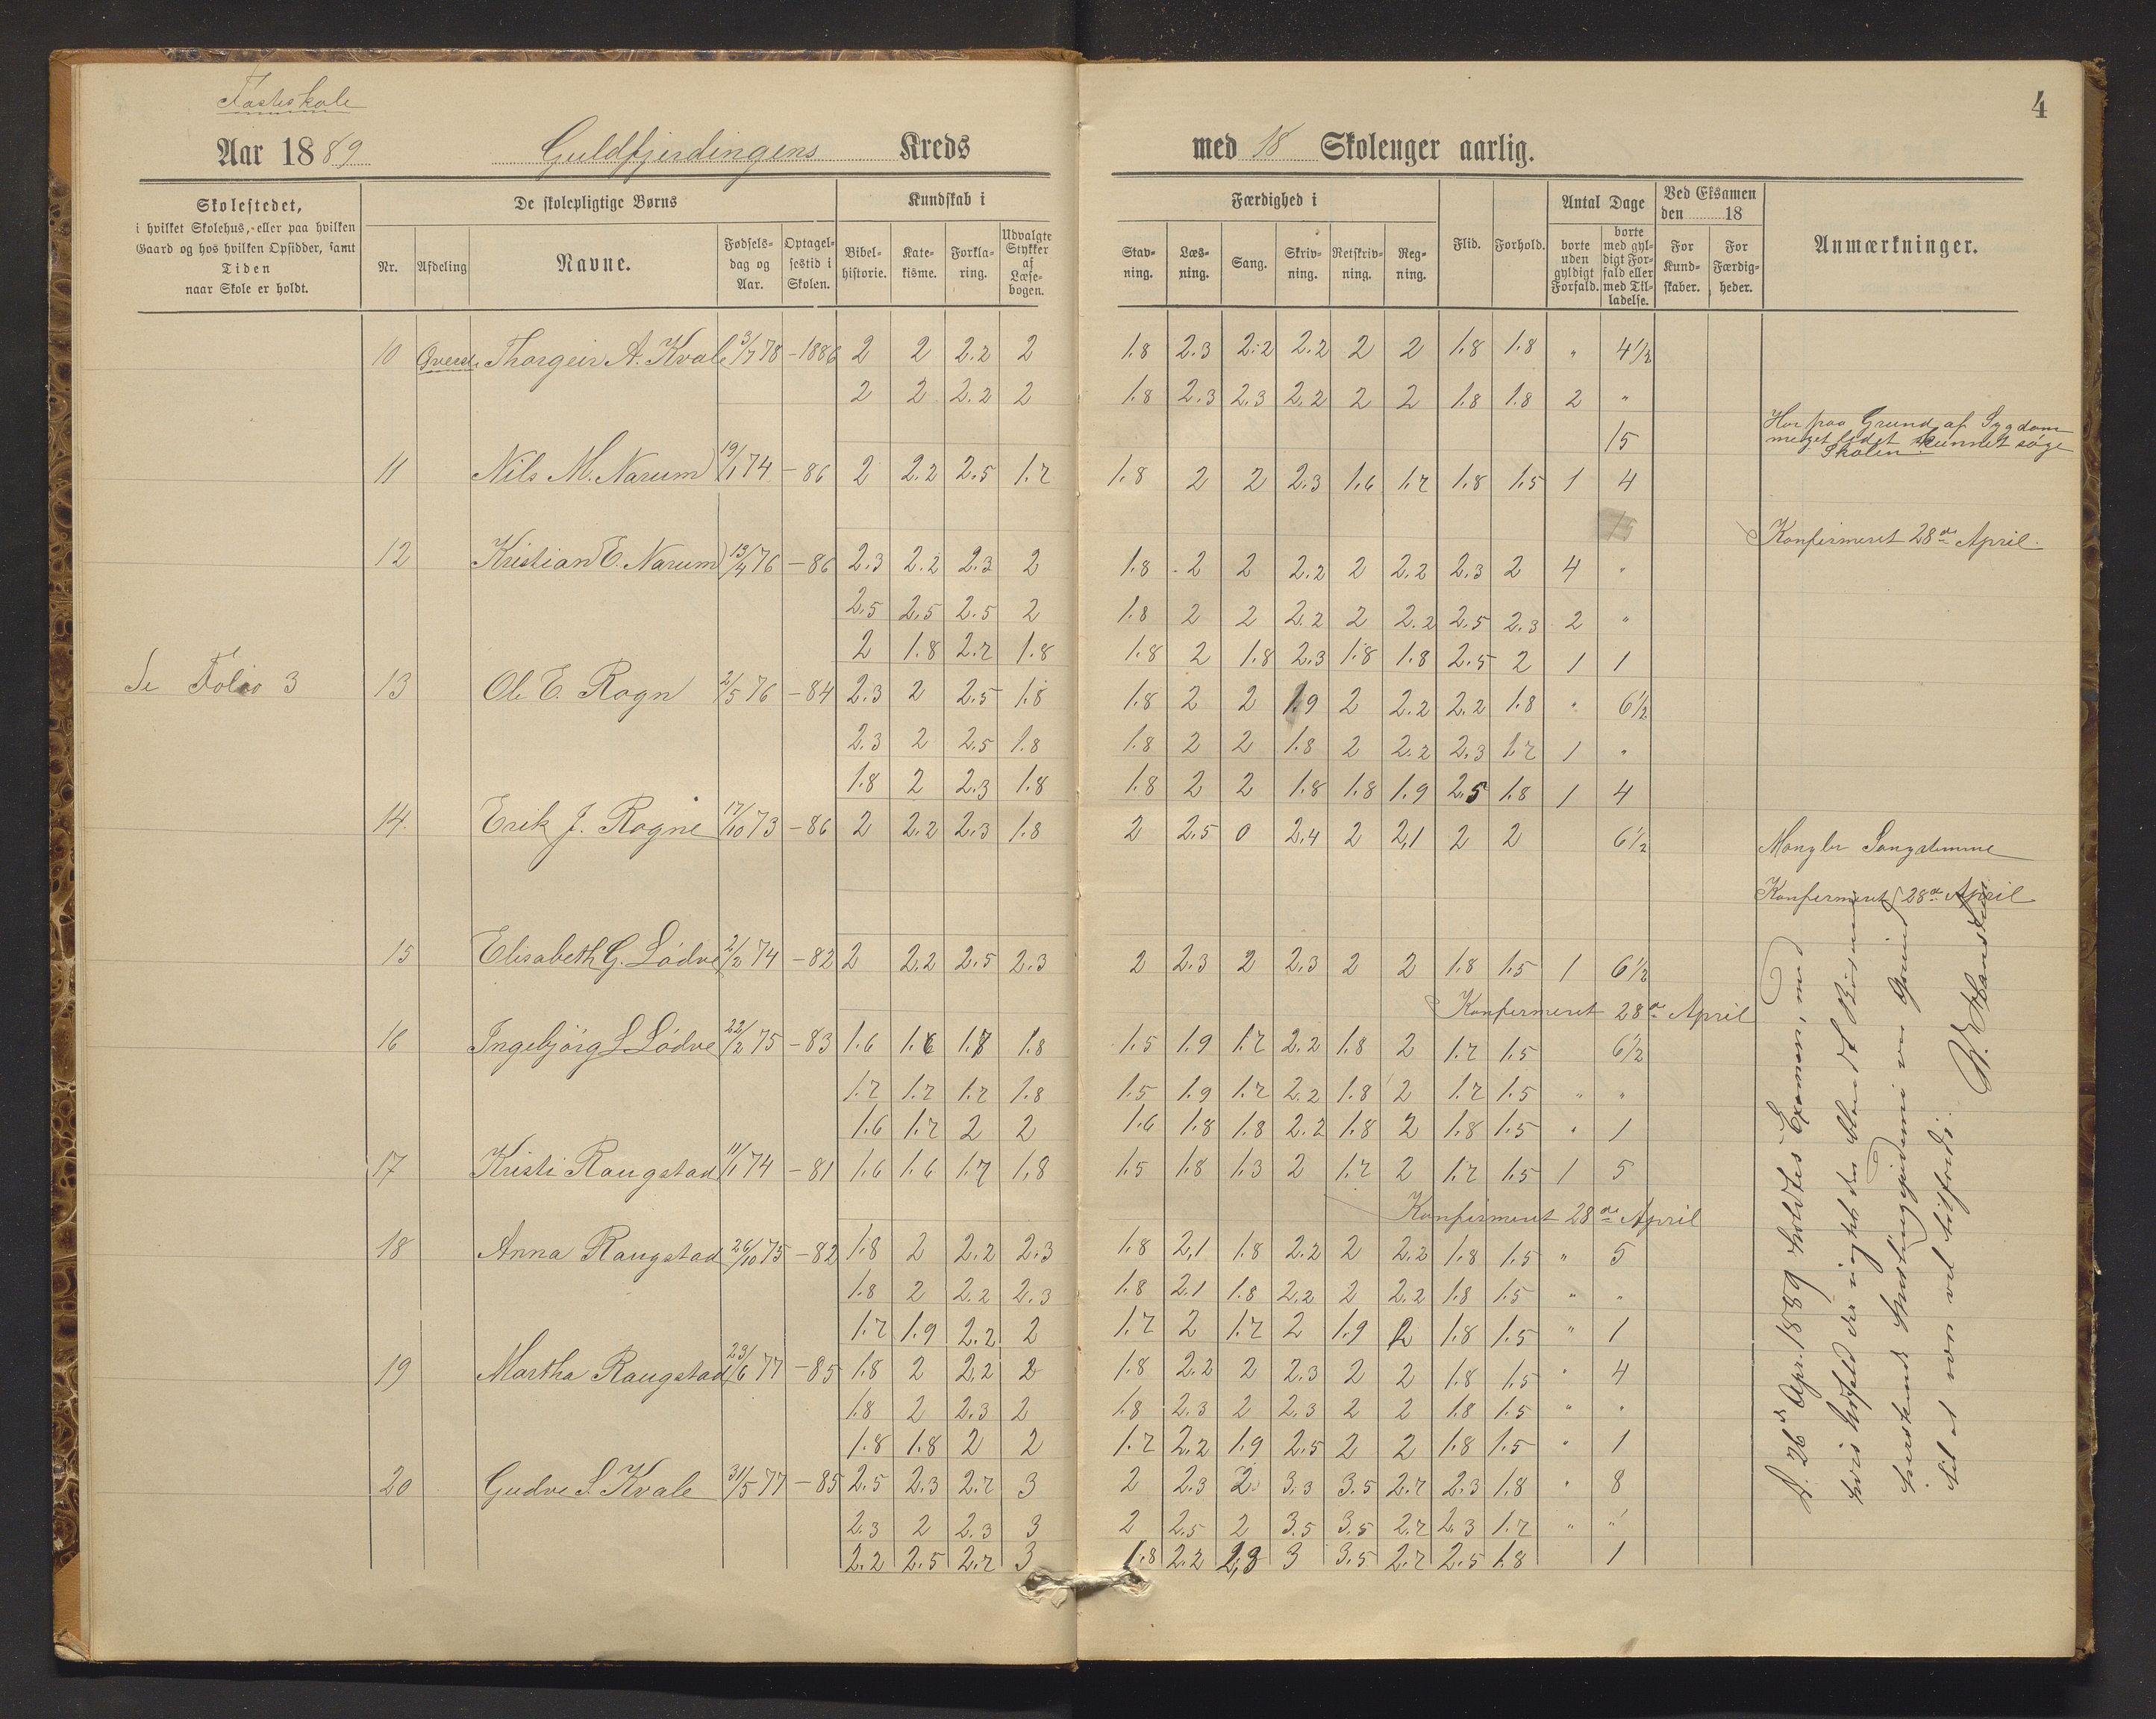 Fasteskole
4
Aar 1889 Guldfjerdingens Kreds med 18 Skoleuger aarlig.
Skolestedet, i hvilket Skolehus, eller paa hvilken Gaard og hos hvilken Opsidder, samt Tiden naar Skole er holdt.
De skolepligtige Børns
Nr. Afdeling Navne. Fødselsdag og Aar. Optagelsestid i Skolen.
Kundskab i
Bibelhistorie. Katekisme. Forklaring. Udvalgte Stykker af Læsebogen.
Færdighed i
Stavning. Læsning. Sang. Skrivning. Retskrivning. Regning.
Flid. Forhold.
Antal Dage
borte uden gyldigt Forfald. borte med gyldigt Forfald eller med Tilladelse.
Ved Eksamen den 18
For Kundskaber. For Færdigheder.
Anmærkninger.
10 Øverste Thorgeir A. Kvale 3/7 78 - 1886 2 2 2.2 2 1.8 2.3 2.2 2.2 2 2 1.8 1.8 " 4½
2 2 2.2 2 1.8 2.3 2.3 2.2 2 2 1.8 1.8 2 "
15 Har paa Grund af Sygdom
meget lidet kunnet søge
Skolen
11 Nils M. Narum 19/1 74 - 86 2 2.2 2.5 1.7 1.8 2 2 2.3 1.6 1.7 1.8 1.5 1 4
15 Konfirmeret 28de April.
12 Kristian E. Narum 13/4 76 - 86 2.3 2.2 2.3 2 1.8 2 2 2.2 2 2.2 2.3 2 4 "
2.5 2.5 2.5 2 1.8 2 2 2.2 2 2.2 2.5 2.3 2 "
2 1.8 2.7 1.8 1.8 2 1.8 2.3 1.8 1.8 2.5 2 1 1
Se Folio 3 13 Ole E. Rogn 2/5 76 - 84 2.3 2 2.5 1.8 1.8 2 2 1.9 2 2.2 2.2 1.8 " 6½
2.3 2 2.5 1.8 1.8 2 2 1.8 2 2.2 2.3 1.7 1 "
1.8 2 2.3 1.8 1.8 2 2 1.8 1.8 1.9 2.5 1.8 1 4
14. Erik J. Rogne 17/10 73 - 86 2 2.2 2.3 1.8 2 2.5 0 2.4 2 2,1 2 2 6½ Mangler Sangstemme
Konfirmeret 28de April
15 Elisabeth G. Lødve 2/2 74 - 82 2 2.2 2.5 2.3 2 2.3 2 2.3 2 2 1.8 1.5 1 6½
Konfirmeret 28de April
16 Ingebjörg L Lødve 22/2 75 - 83 1.6 1.6 1.7 1.8 1.5 1.9 1.7 2.2 1.8 2 1.7 1.5 6½
1.7 1.7 1.7 1.8 1.5 1.9 1.7 2.2 1.8 2 1.7 1.5 " "
1.6 1.7 2 2 1.6 1.8 1.8 2.2 1.8 2 1.8 1.5 " 1
17 Kristi Raugstad 11/1 74 - 81 1.6 1.6 1.7 1.8 1.5 1.8 1.3 2 1.7 2 1.7 1.5 1 5
Konfirmeret 28de April
18 Anna Raugstad 26/10 75 - 82 1.8 2 2.2 2.3 1.8 2,1 1.8 2.2 2 2.2 1.8 1.5 " 5
1.8 2 2.2 2.3 1.8 2.1 1.8 2.2 2 2.2 1.8 1.5 " "
1.7 1.9 2.2 2 1.7 2 1.7 2 1.9 2 1.8 1.5 " 1
19 Martha Raugstad 23/6 77 - 85 1.8 2 2.2 2 1.8 2.2 2 2.3 2 2 1.8 1.5 " 4
1.8 2 2.3 2 1.8 2.3 2 2.3 2 2 1.8 1.5 " "
1.8 1.8 2 2 1.7 2.2 1.9 2.5 2 2 1.8 1.5 " 1
20 Gudve S. Kvale 31/5 77 - 85 2.5 2.3 2.7 3 2 2.3 2 3.3 3.5 2.7 2.3 1.8 " 8
2.3 2 2.3 3 2 2.5 2 3.5 3.5 2.7 2.3 1.7 " "
2.2 2.5 2.7 3 1.8 2.2 2,3 3 3.5 2.7 2.5 1.8 1
D. 26de Apr. 1889 holdtes Examen, med
hvis Udfald der rigtet
herskende var Grund
til at være vel tilfreds.